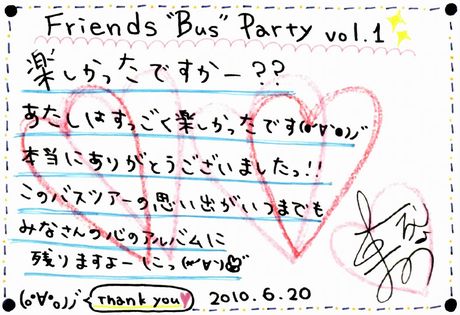 Friends "Bus" Party vol.1
楽しかったですかー??
あたしはすっごく楽しかったです(●'∀'●)ノ"
本当にありがとうございましたっ!!
このバスツアーの思い出がいつまでも
みなさんの心のアルバムに
残りますよーにっ
(o'∀'o)ノ" Thank you♥ 2010.6.20